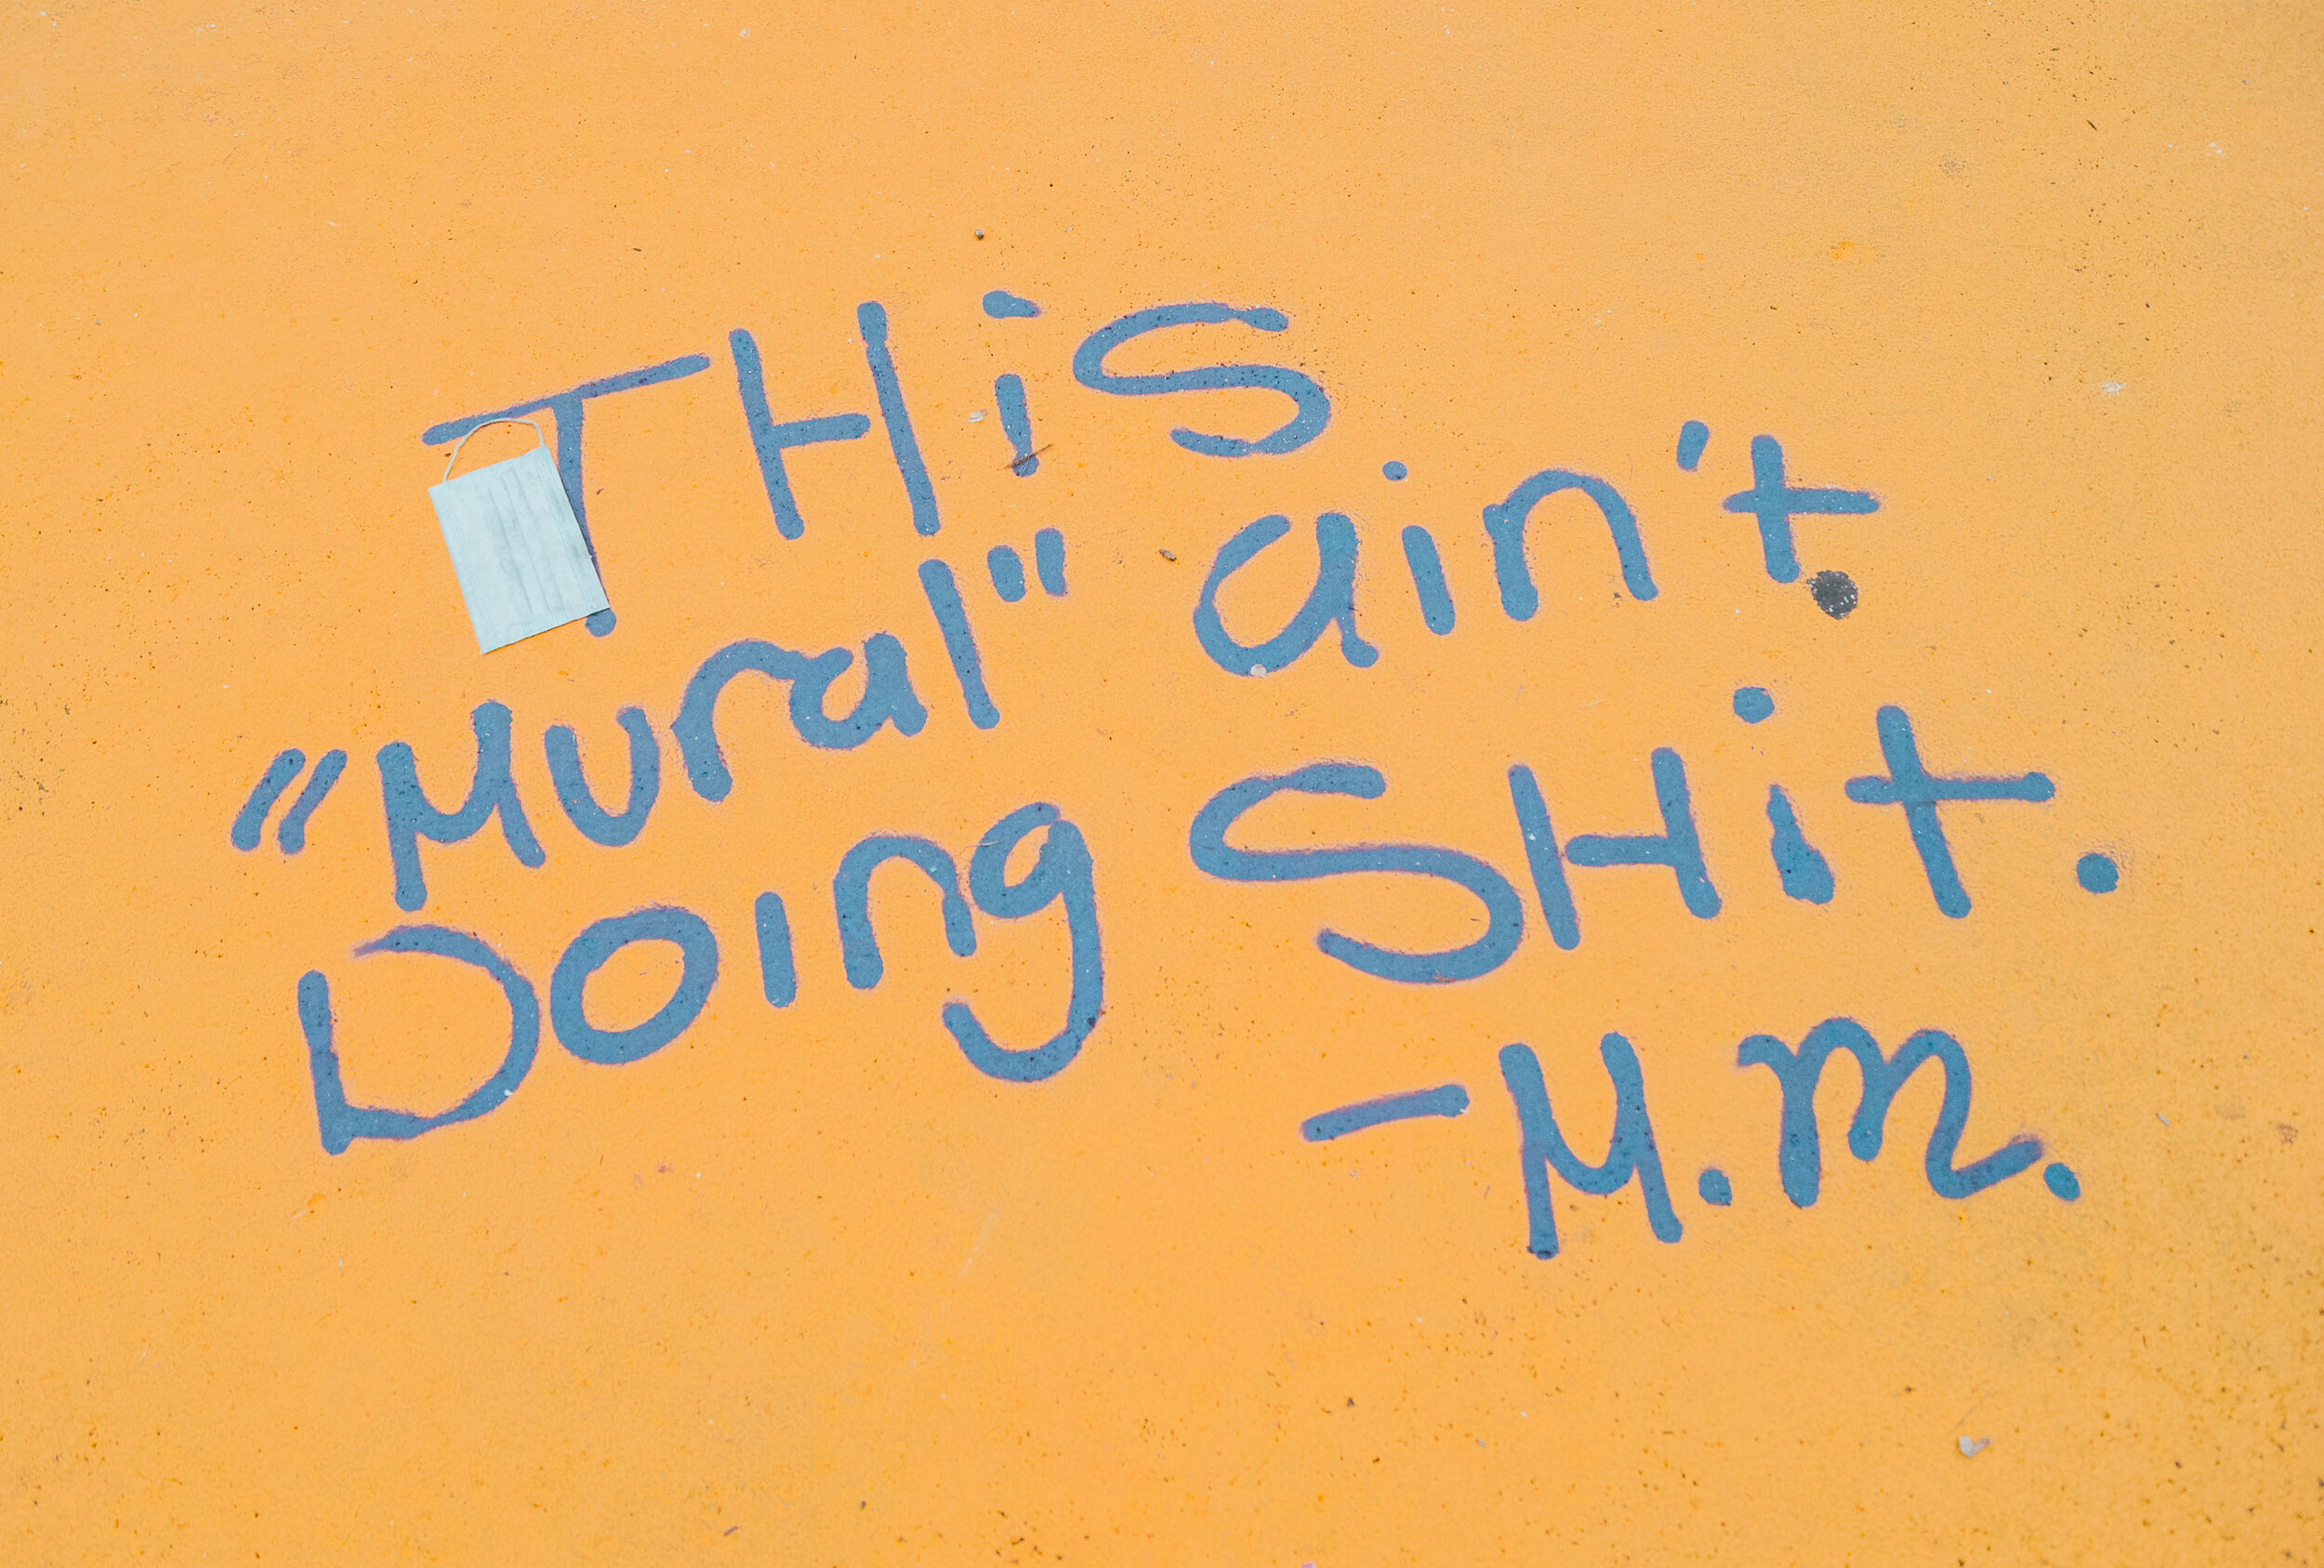 THis
"Mural" ain't
Doing SHit.
-M.m.